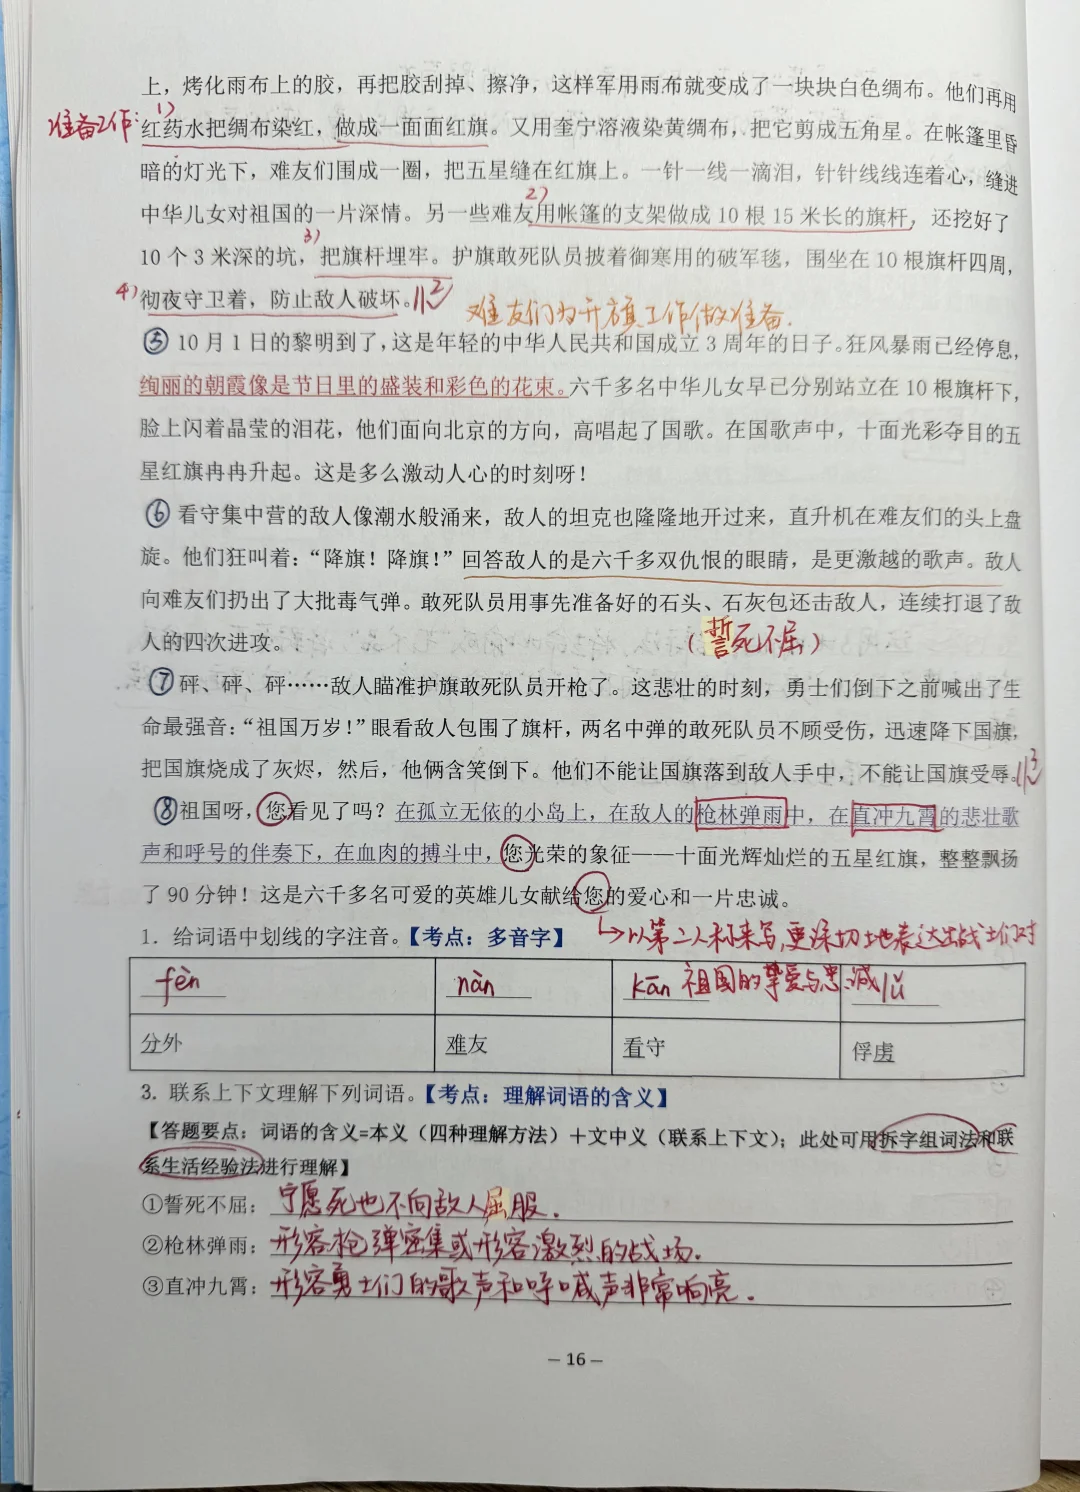 上，烤化雨布上的胶，再把胶刮掉、擦净，这样军用雨布就变成了一块块白色绸布。他们再用
准备工作：1）
红药水把绸布染红，做成一面面红旗。又用奎宁溶液染黄绸布，把它剪成五角星。在帐篷里昏
暗的灯光下，难友们围成一圈，把五星缝在红旗上。一针一线一滴泪，针针线线连着心，缝进
2）
中华儿女对祖国的一片深情。另一些难友用帐篷的支架做成 10 根 15 米长的旗杆，还挖好了
3）
10 个 3 米深的坑，把旗杆埋牢。护旗敢死队员披着御寒用的破军毯，围坐在 10 根旗杆四周，
4）
彻夜守卫着，防止敌人破坏。
难友们为升旗工作做准备.
⑤ 10 月 1 日的黎明到了，这是年轻的中华人民共和国成立 3 周年的日子。狂风暴雨已经停息，
绚丽的朝霞像是节日里的盛装和彩色的花束。六千多名中华儿女早已分别站立在 10 根旗杆下，
脸上闪着晶莹的泪花，他们面向北京的方向，高唱起了国歌。在国歌声中，十面光彩夺目的五
星红旗冉冉升起。这是多么激动人心的时刻呀！
⑥ 看守集中营的敌人像潮水般涌来，敌人的坦克也隆隆地开过来，直升机在难友们的头上盘
旋。他们狂叫着：“降旗！降旗！”回答敌人的是六千多双仇恨的眼睛，是更激越的歌声。敌人
向难友们扔出了大批毒气弹。敢死队员用事先准备好的石头、石灰包还击敌人，连续打退了敌
人的四次进攻。
（誓死不屈）
⑦ 砰、砰、砰……敌人瞄准护旗敢死队员开枪了。这悲壮的时刻，勇士们倒下之前喊出了生
命最强音：“祖国万岁！”眼看敌人包围了旗杆，两名中弹的敢死队员不顾受伤，迅速降下国旗，
把国旗烧成了灰烬，然后，他俩含笑倒下。他们不能让国旗落到敌人手中，不能让国旗受辱。
⑧ 祖国呀，您看见了吗？在孤立无依的小岛上，在敌人的枪林弹雨中，在直冲九霄的悲壮歌
声和呼号的伴奏下，在血肉的搏斗中，您光荣的象征——十面光辉灿烂的五星红旗，整整飘扬
了 90 分钟！这是六千多名可爱的英雄儿女献给您的爱心和一片忠诚。
1. 给词语中划线的字注音。【考点：多音字】
以第二人称来写,更深切地表达出战士们对
祖国的挚爱与忠诚
fèn nàn kān lǔ
分外 难友 看守 俘虏
3. 联系上下文理解下列词语。【考点：理解词语的含义】
【答题要点：词语的含义=本义（四种理解方法）＋文中义（联系上下文）；此处可用拆字组词法和联
系生活经验法进行理解】
①誓死不屈：宁愿死也不向敌人屈服．
②枪林弹雨：形容枪弹密集或形容激烈的战场．
③直冲九霄：形容勇士们的歌声和呼喊声非常响亮．
— 16 —